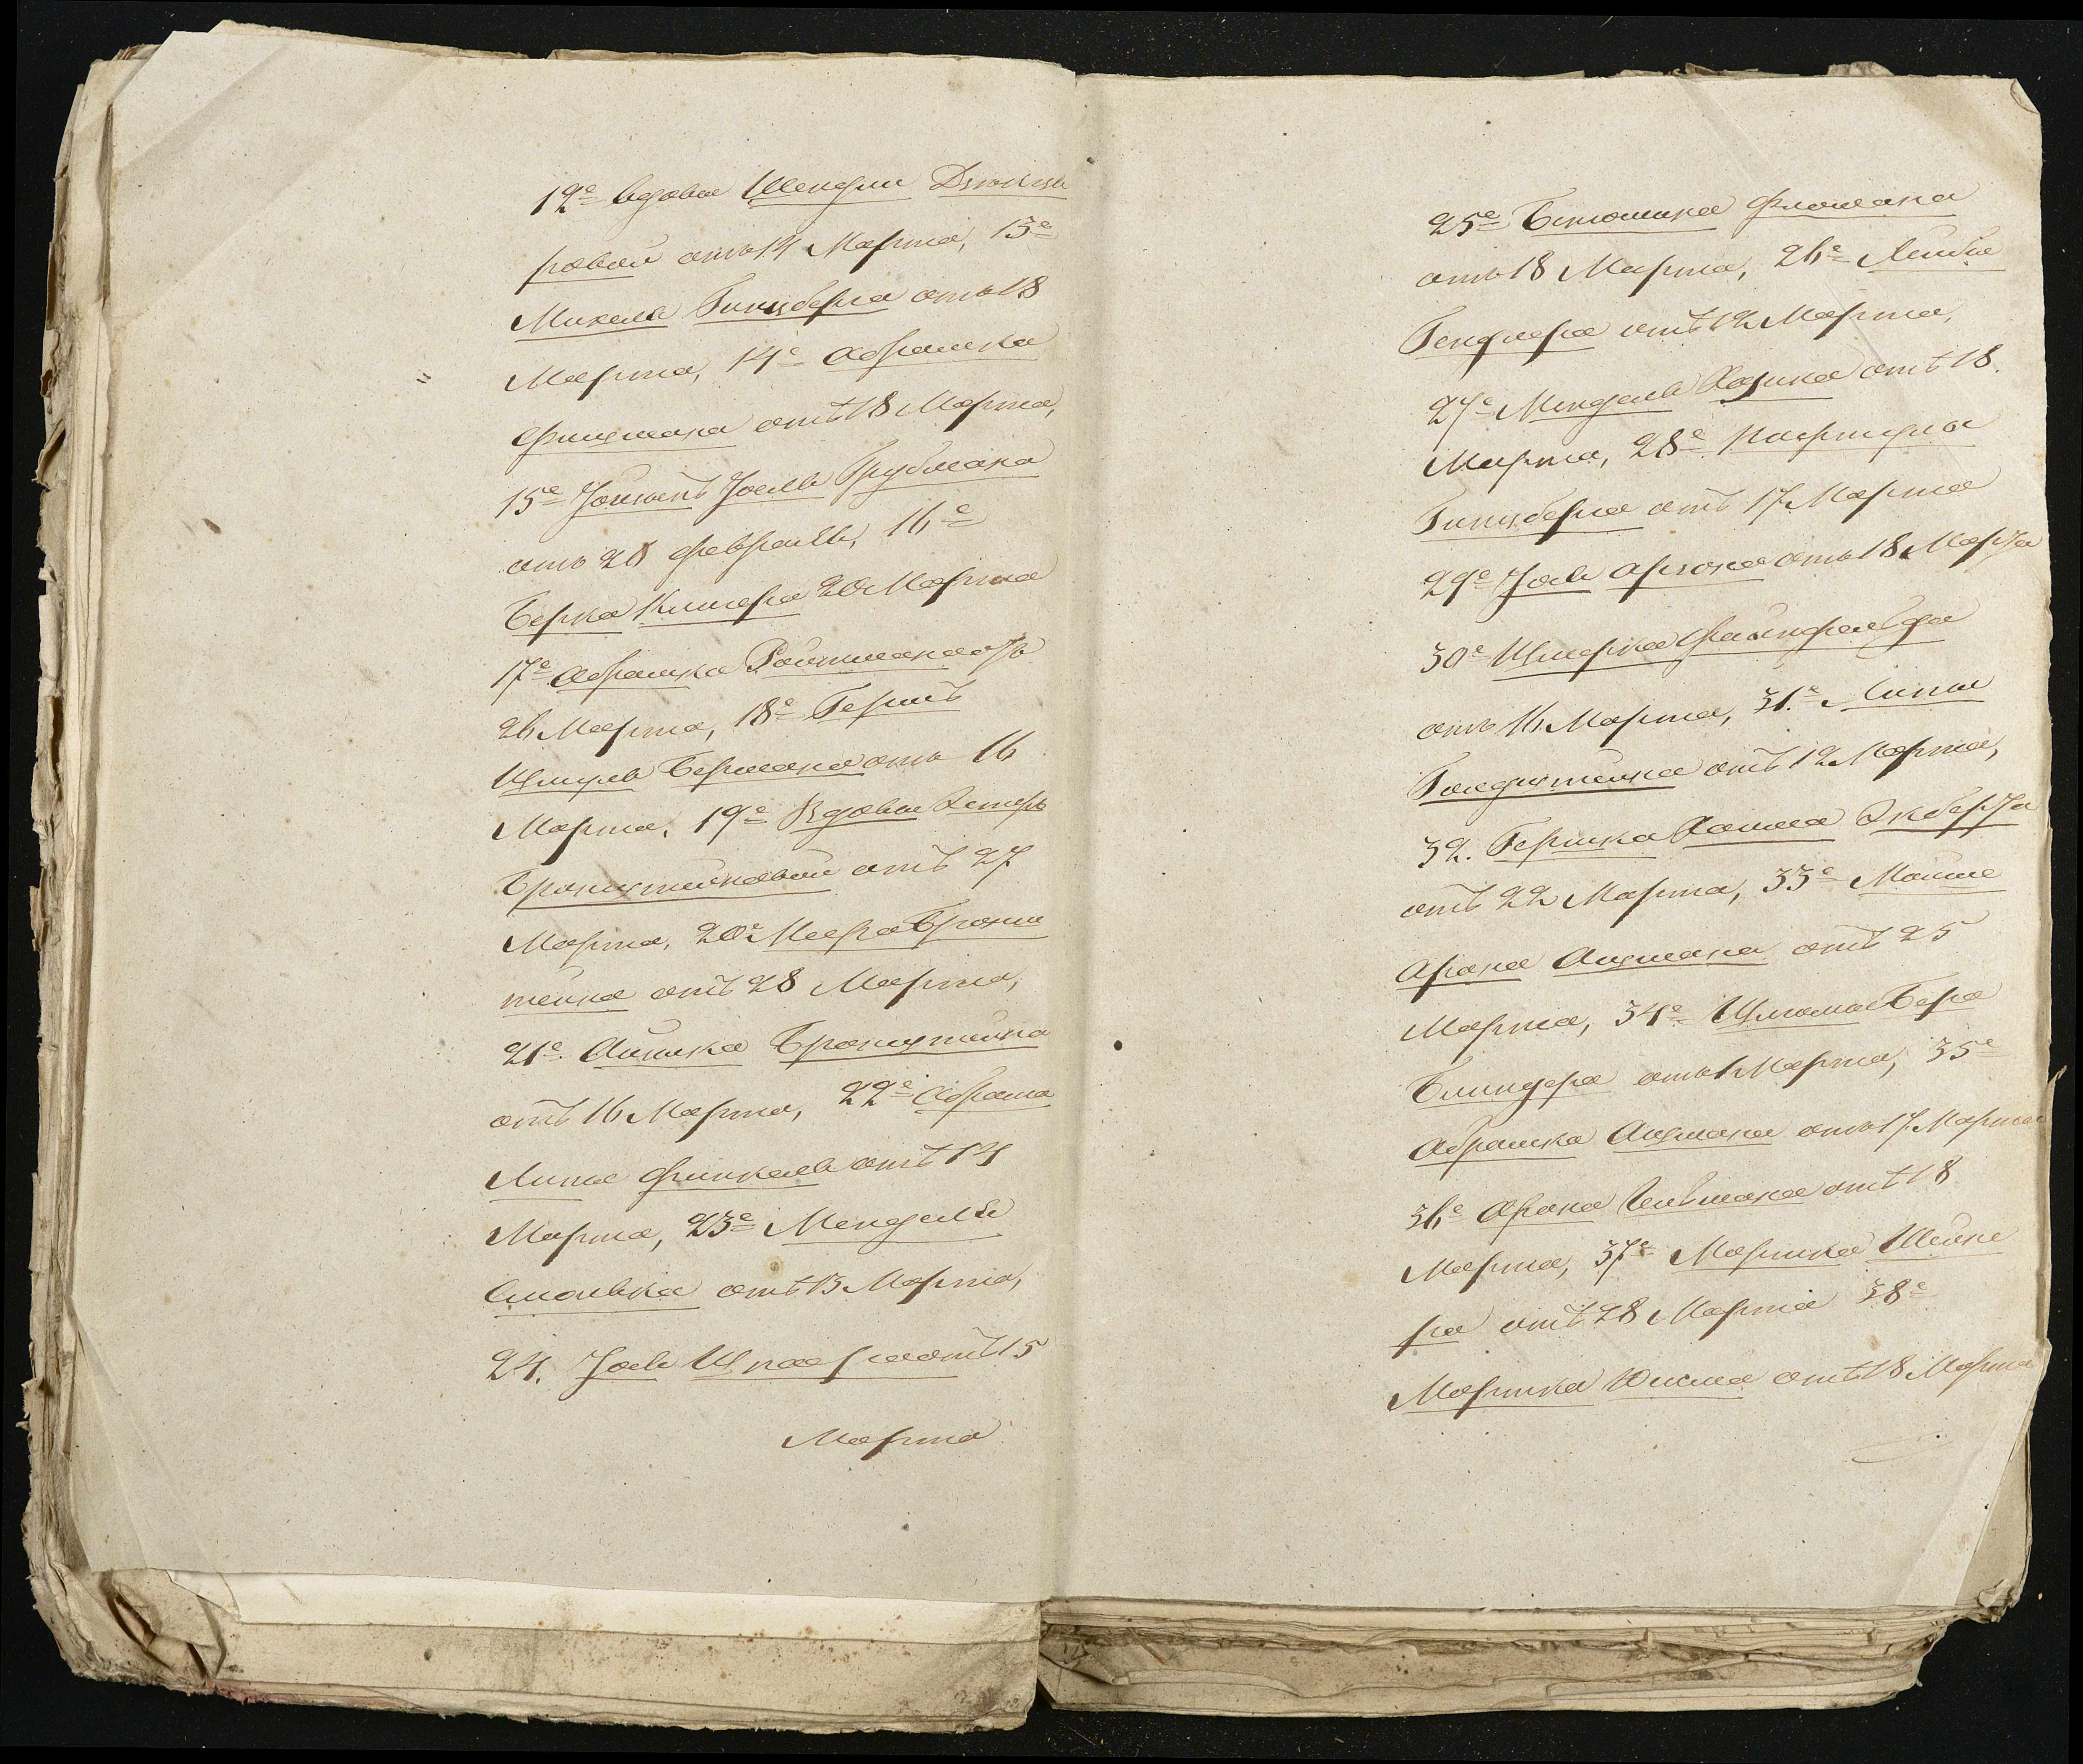 12е вдовы Шендли Дзюкцы
ровой отъ 14 Марта, 13е
Михеля Гинцберга отъ 18
Марта, 14е Абрамка
Фишмана отъ 18 Марта,
15е Іойнеть Іоель Грубмана
отъ 28 Февраля, 16е
Берка Кишера 20 Марта
17е Абрамка Ройтмана отъ
26 Марта, 18е Гершъ
Шмуль Бермана отъ 16
Марта, 19е Вдовы Эстеръ
Бронштейновой отъ 27
Марта, 20е Меера Бронш
тейна отъ 28 Марта,
21е Айзика Бронштейна
отъ 16 Марта, 22е Абрама
Липы Финкель отъ 14
Марта, 23е Менделя
Смоляка отъ 13 Марта,
24. Іось Шпаера отъ 15
Марта
25е Беньомина Фломана
отъ 18 Марта, 26е Лейбы
Гендлера отъ 12 Марта,
27е Мендель Хазина отъ 18.
Марта, 28е
Гинцберга отъ 17 Марта
29е Іось отъ 18 Марта
30е Шмерка Файнфельда
отъ 16 Марта, 31е Липы
Гольдштейна отъ 12 Марта,
32. Гершка Хаима Экберга
отъ 22 Марта, 33е Мойше
Арона Ацмана отъ 25
Марта, 34е Шлиомы Бера
Блиндера отъ Марта, 35е
Абрамка Ацмана отъ 17 Марта
36е Арона отъ 18
Марта, 37е Моршка Шейне
ра отъ 28 Марта 38е
Моршка отъ 18 Марта